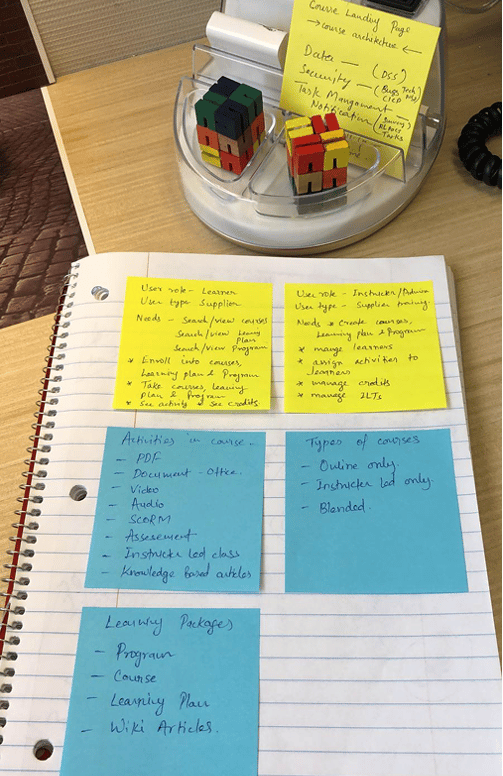 Course Landing Page
→ course architecture ←
Data — (DSS)
Security — (Bugs Tech
CICP
Task Mangment
Notification (Survey
User role - Learner
User type Supplier
Needs - Search/view courses
Search/view Learng
Plan
Search/view Program
* Enroll into courses,
Learning plan & Program
* Take courses, learning
plan & Program
* See activity * See credits.
User role - Instructor/
User type - Supplier training.
Needs * Create courses,
Learning plan & Program
* mange learners
* assign activities to
learners
* manage credits
* manage ILTs
Activities in course.
- PDF
- Document - Office.
- Video
- Audio
- SCORM
- Assesement
- Instructor led class
- Knowledge based articles
Types of courses
- Online only.
- Instructor led only.
- Blended.
Learning Packages
- Program
- Course
- Learning Plan
- Wiki Articles.